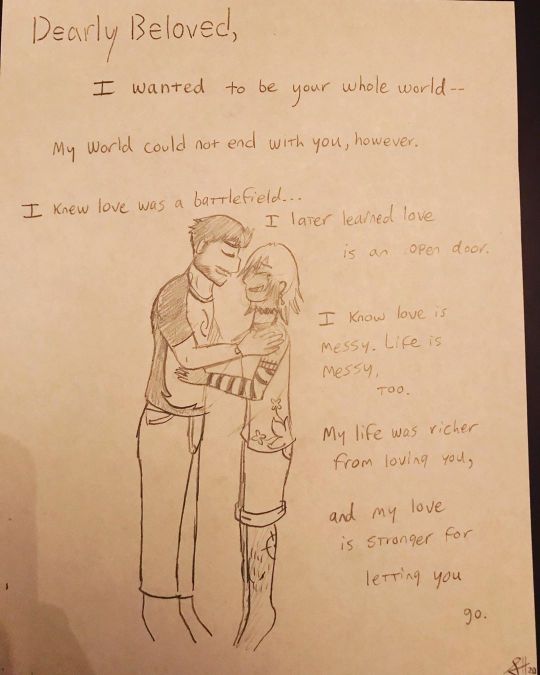 Dearly Beloved,
I wanted to be your whole world--
My world could not end with you, however.
I knew love was a battlefield...
I later learned love
is an open door.
I know love is
messy. Life is
messy,
too.
My life was richer
from loving you,
and my love
is stronger for
letting you
go.